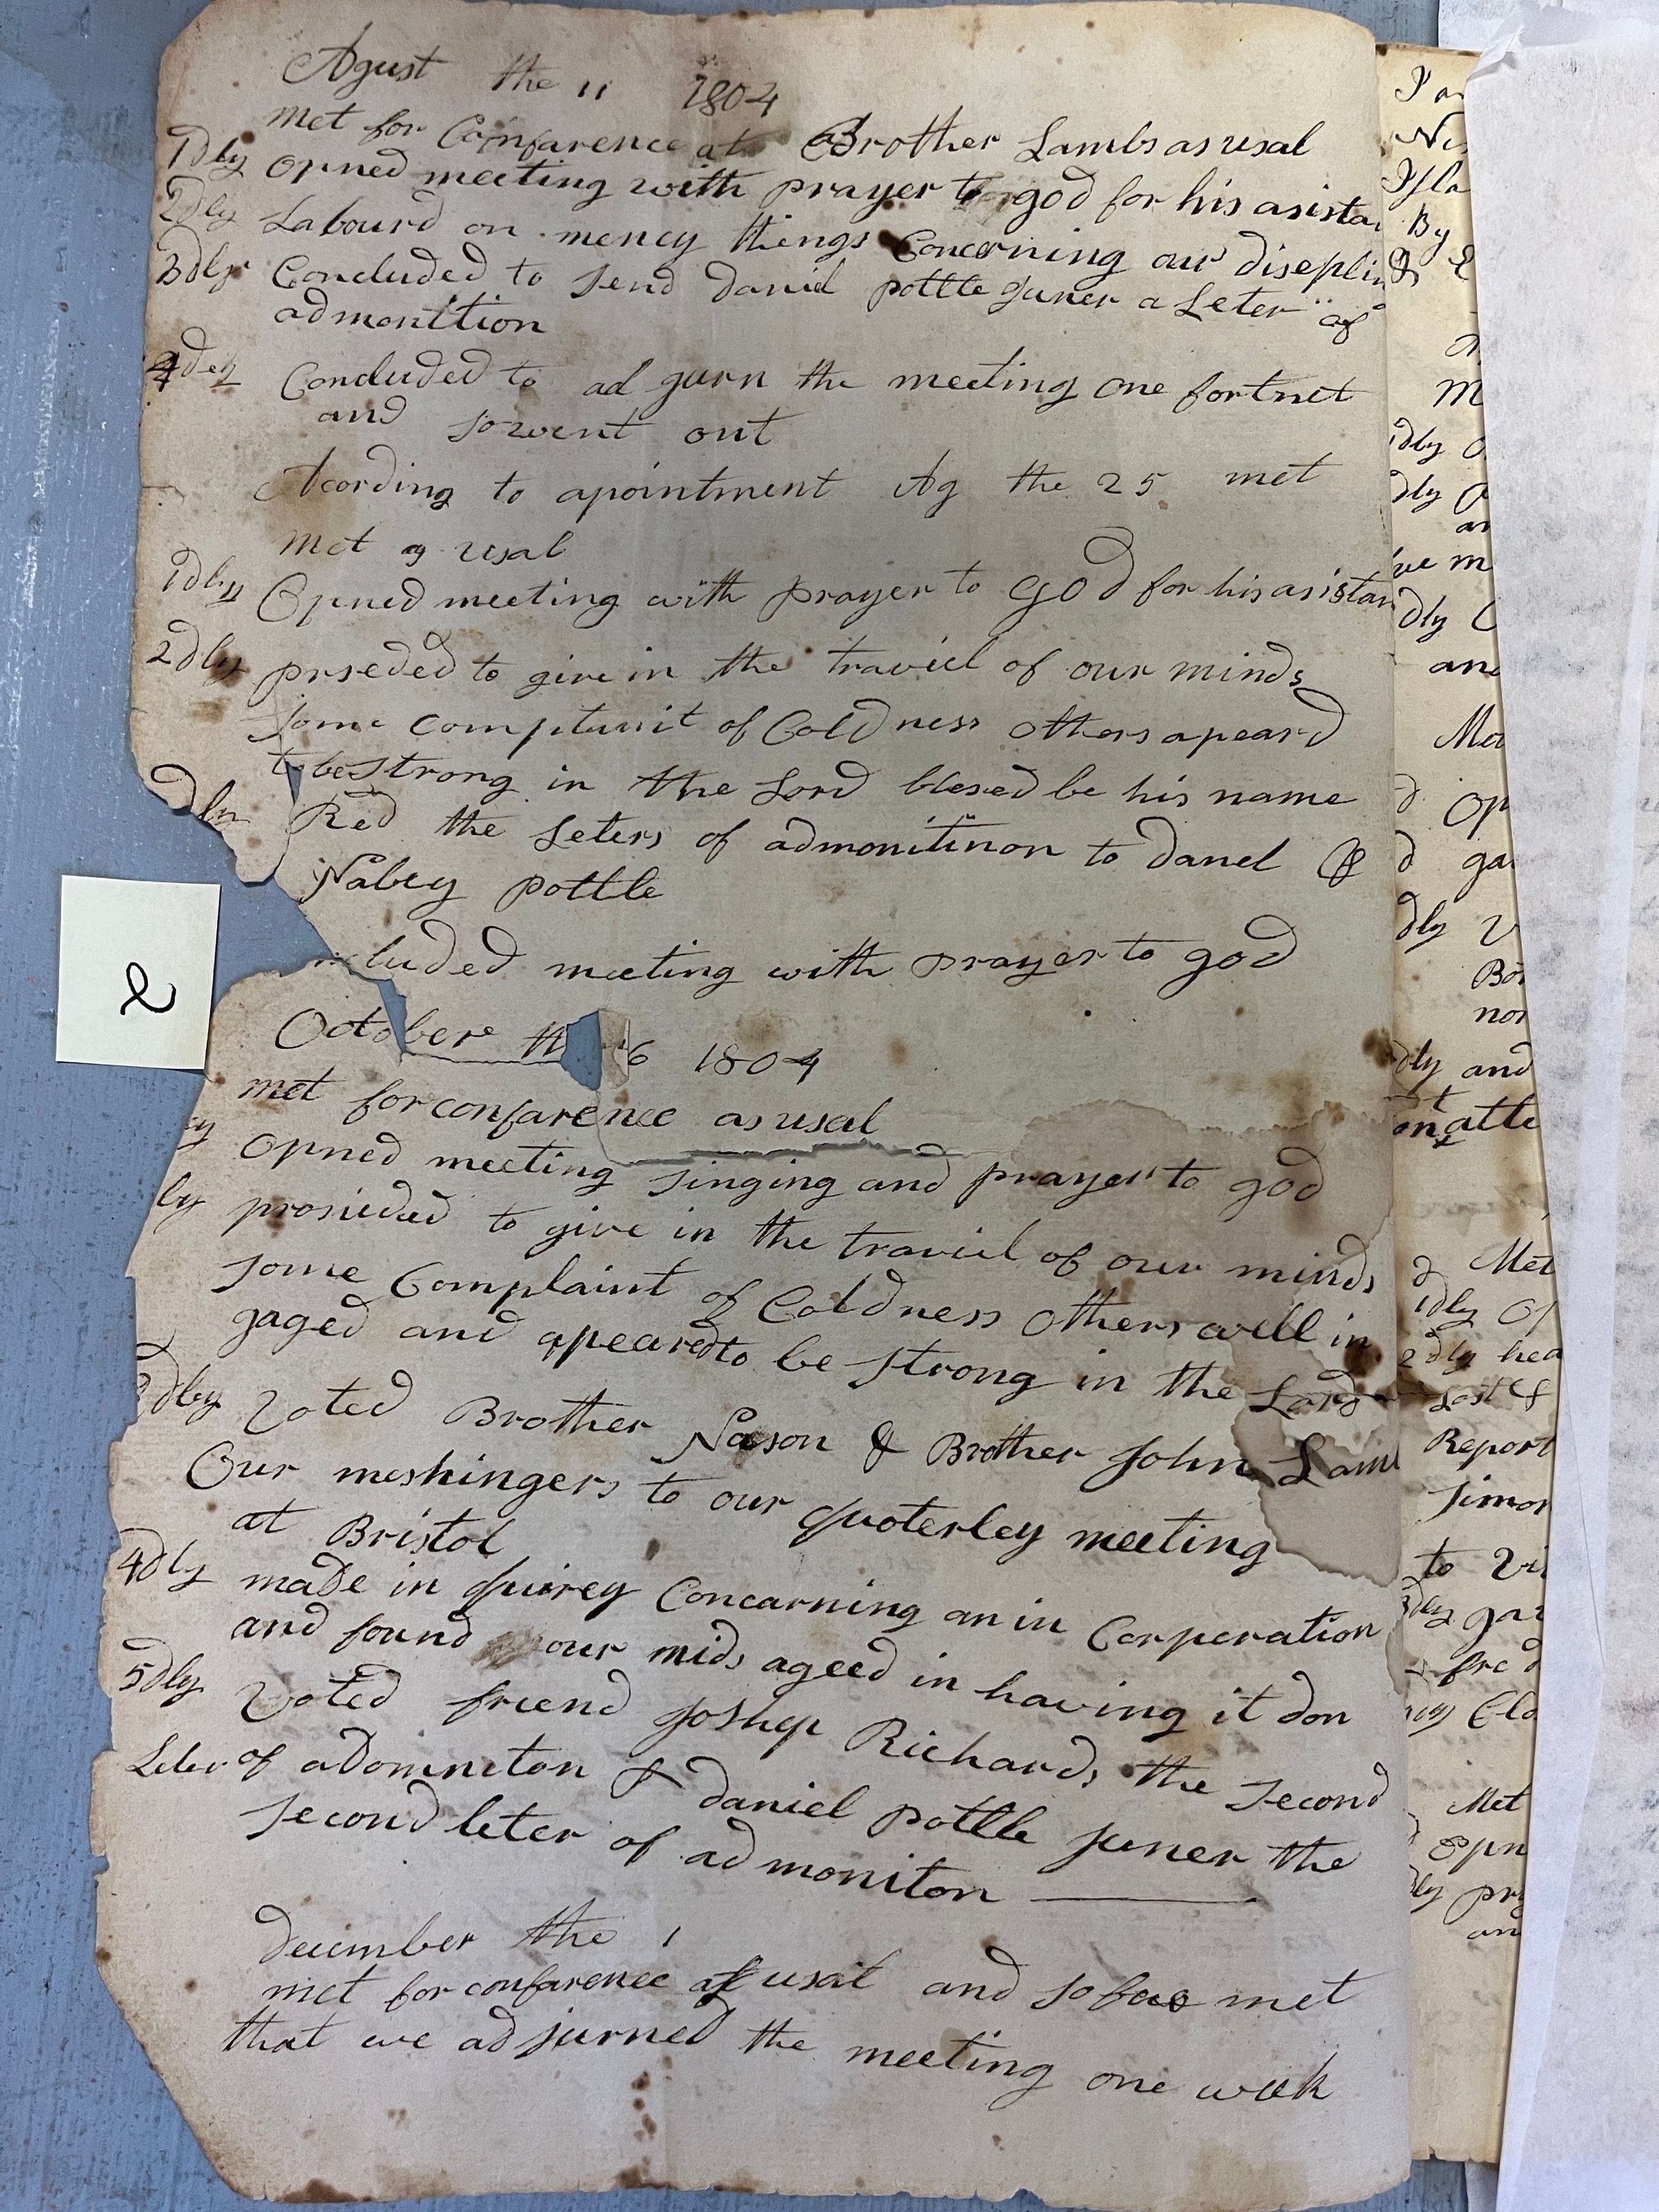 Agust the 11 1804
met for Confarence at Brother Lambs as usal
1dly opned meeting with prayer to god for his asistan
2dly Labourd on meney things Concerning our diseplin
3dly Concluded to send daniel pottle Juner a Leter of
admonttion
4dly Concluded to ad gurn the meeting one fortnet
and so went out
Acording to apointment Ag the 25 met
met as usal
1dly Opned meeting with prayer to God for his asistan
2dly prseded to give in the traviel of our minds
some complaint of Coldness others apeard
to be strong in the Lord blesed be his name
dly Red the Leters of admonitinon to danel &
Nabey pottle
ncluded meeting with prayer to god
2
October th 6 1804
met for confarence as usal
ly opned meeting singing and prayer to god
ly prosieded to give in the traviel of our minds
some Complaint of Coldness others well in
gaged and apeared to be strong in the Lord
3dley voted Brother Nason & Brother John Lam
Our meshingers to our quoterley meeting
at Bristol
4dly made in quirey Concarning an in Corporation
and found our mids ageed in having it don
5dly voted friend Joshep Richards the second
Leter of adomniton & daniel pottle juner the
second leter of admoniton
December the 1
met for confarence as usal and so few met
that we adjurned the meeting one week